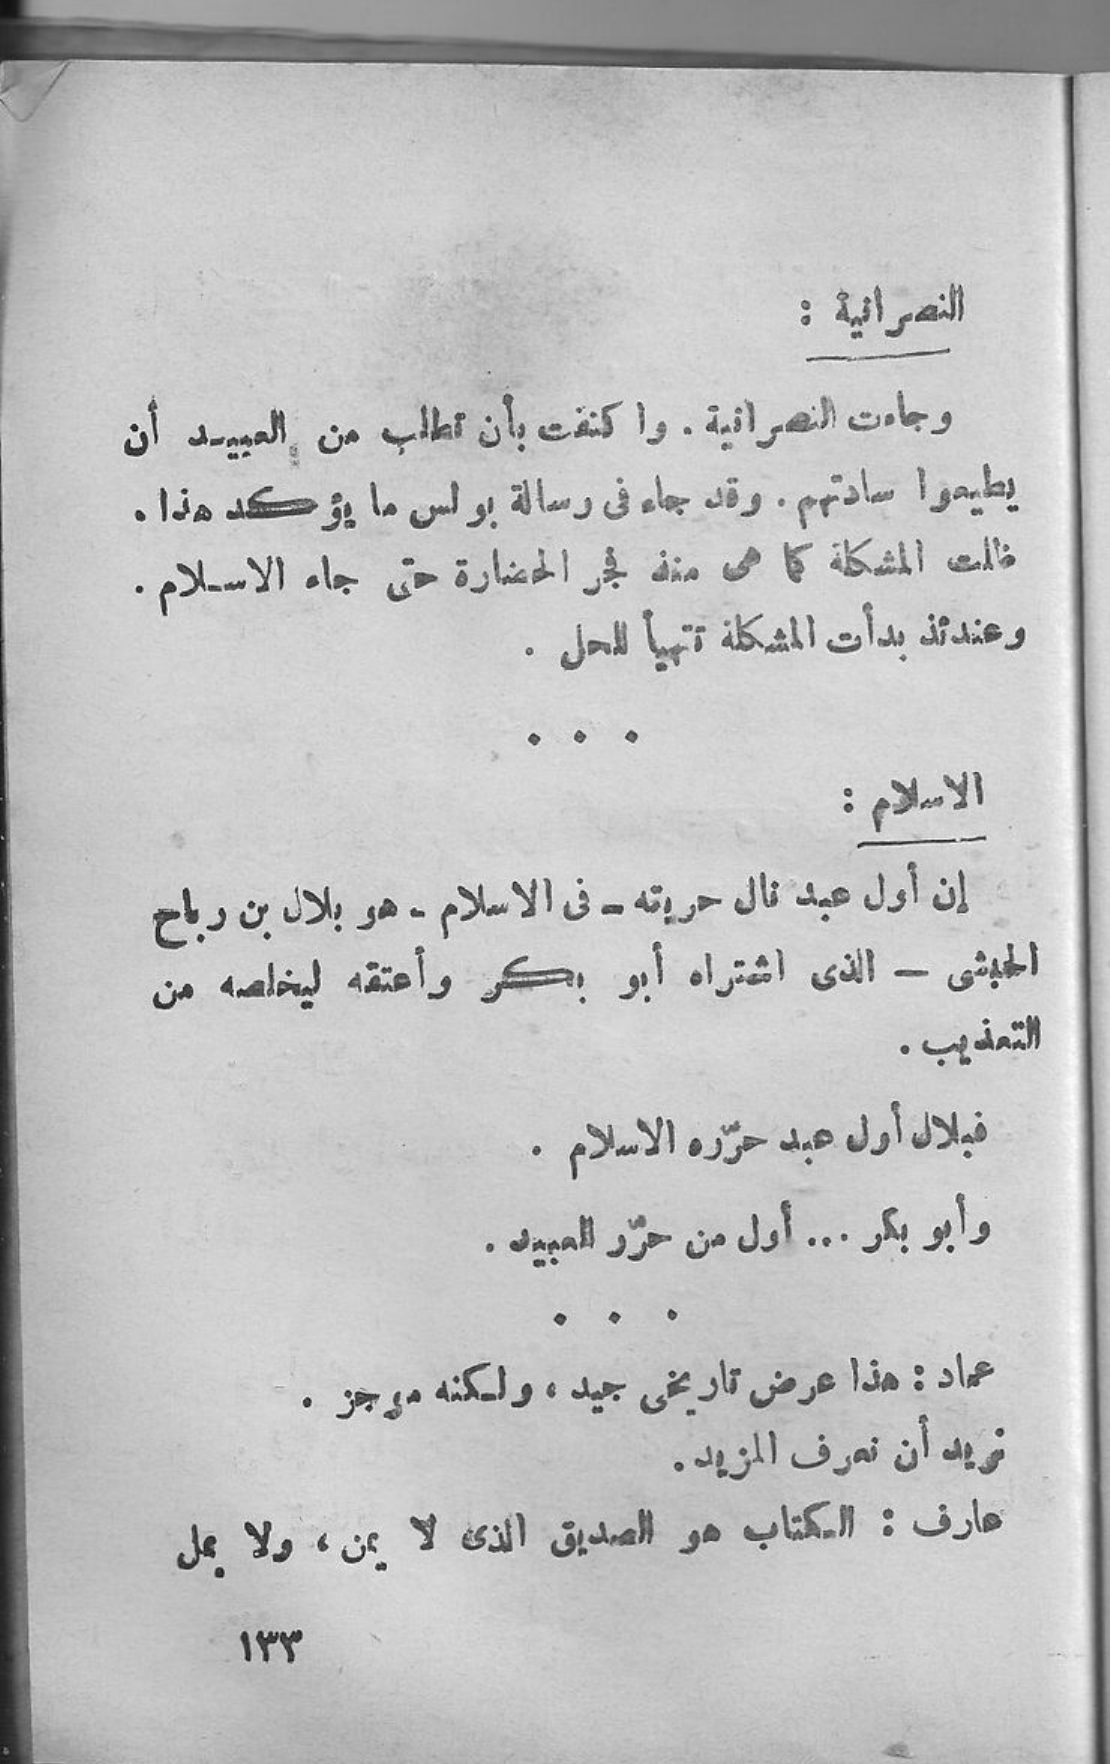 النصرانية :
وجاءت النصرانية . واكتفت بأن تطلب من العبيد أن
يطيعوا سادتهم . وقد جاء فى رسالة بولس ما يؤكد هذا .
ظلت المشكلة كما هى منذ فجر الحضارة حتى جاء الاسلام .
وعندئذ بدأت المشكلة تتهيأ للحل .
. . .
الاسلام :
إن أول عبد نال حريته - فى الاسلام - هو بلال بن رباح
الحبشى — الذى اشتراه أبو بكر وأعتقه ليخلصه من
التعذيب .
فبلال أول عبد حرّره الاسلام .
وأبو بكر ... أول من حرّر العبيد .
. . .
عماد : هذا عرض تاريخى جيد ، ولكنه موجز .
نريد أن نعرف المزيد .
عارف : الكتاب هو الصديق الذى لا يمن ، ولا يمل
١٣٣